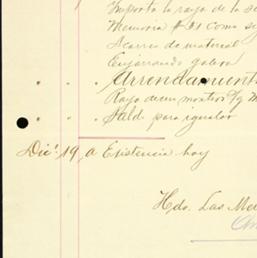 Importo la raya de la se
Memoria # 21 como se
Acarreo de material
Enjarrando galera
" " " Arrendamient
" " " Raya de un montero
" " " Saldo para igualar
Dic. 19, a Existencia hoy
Hda. Las Me